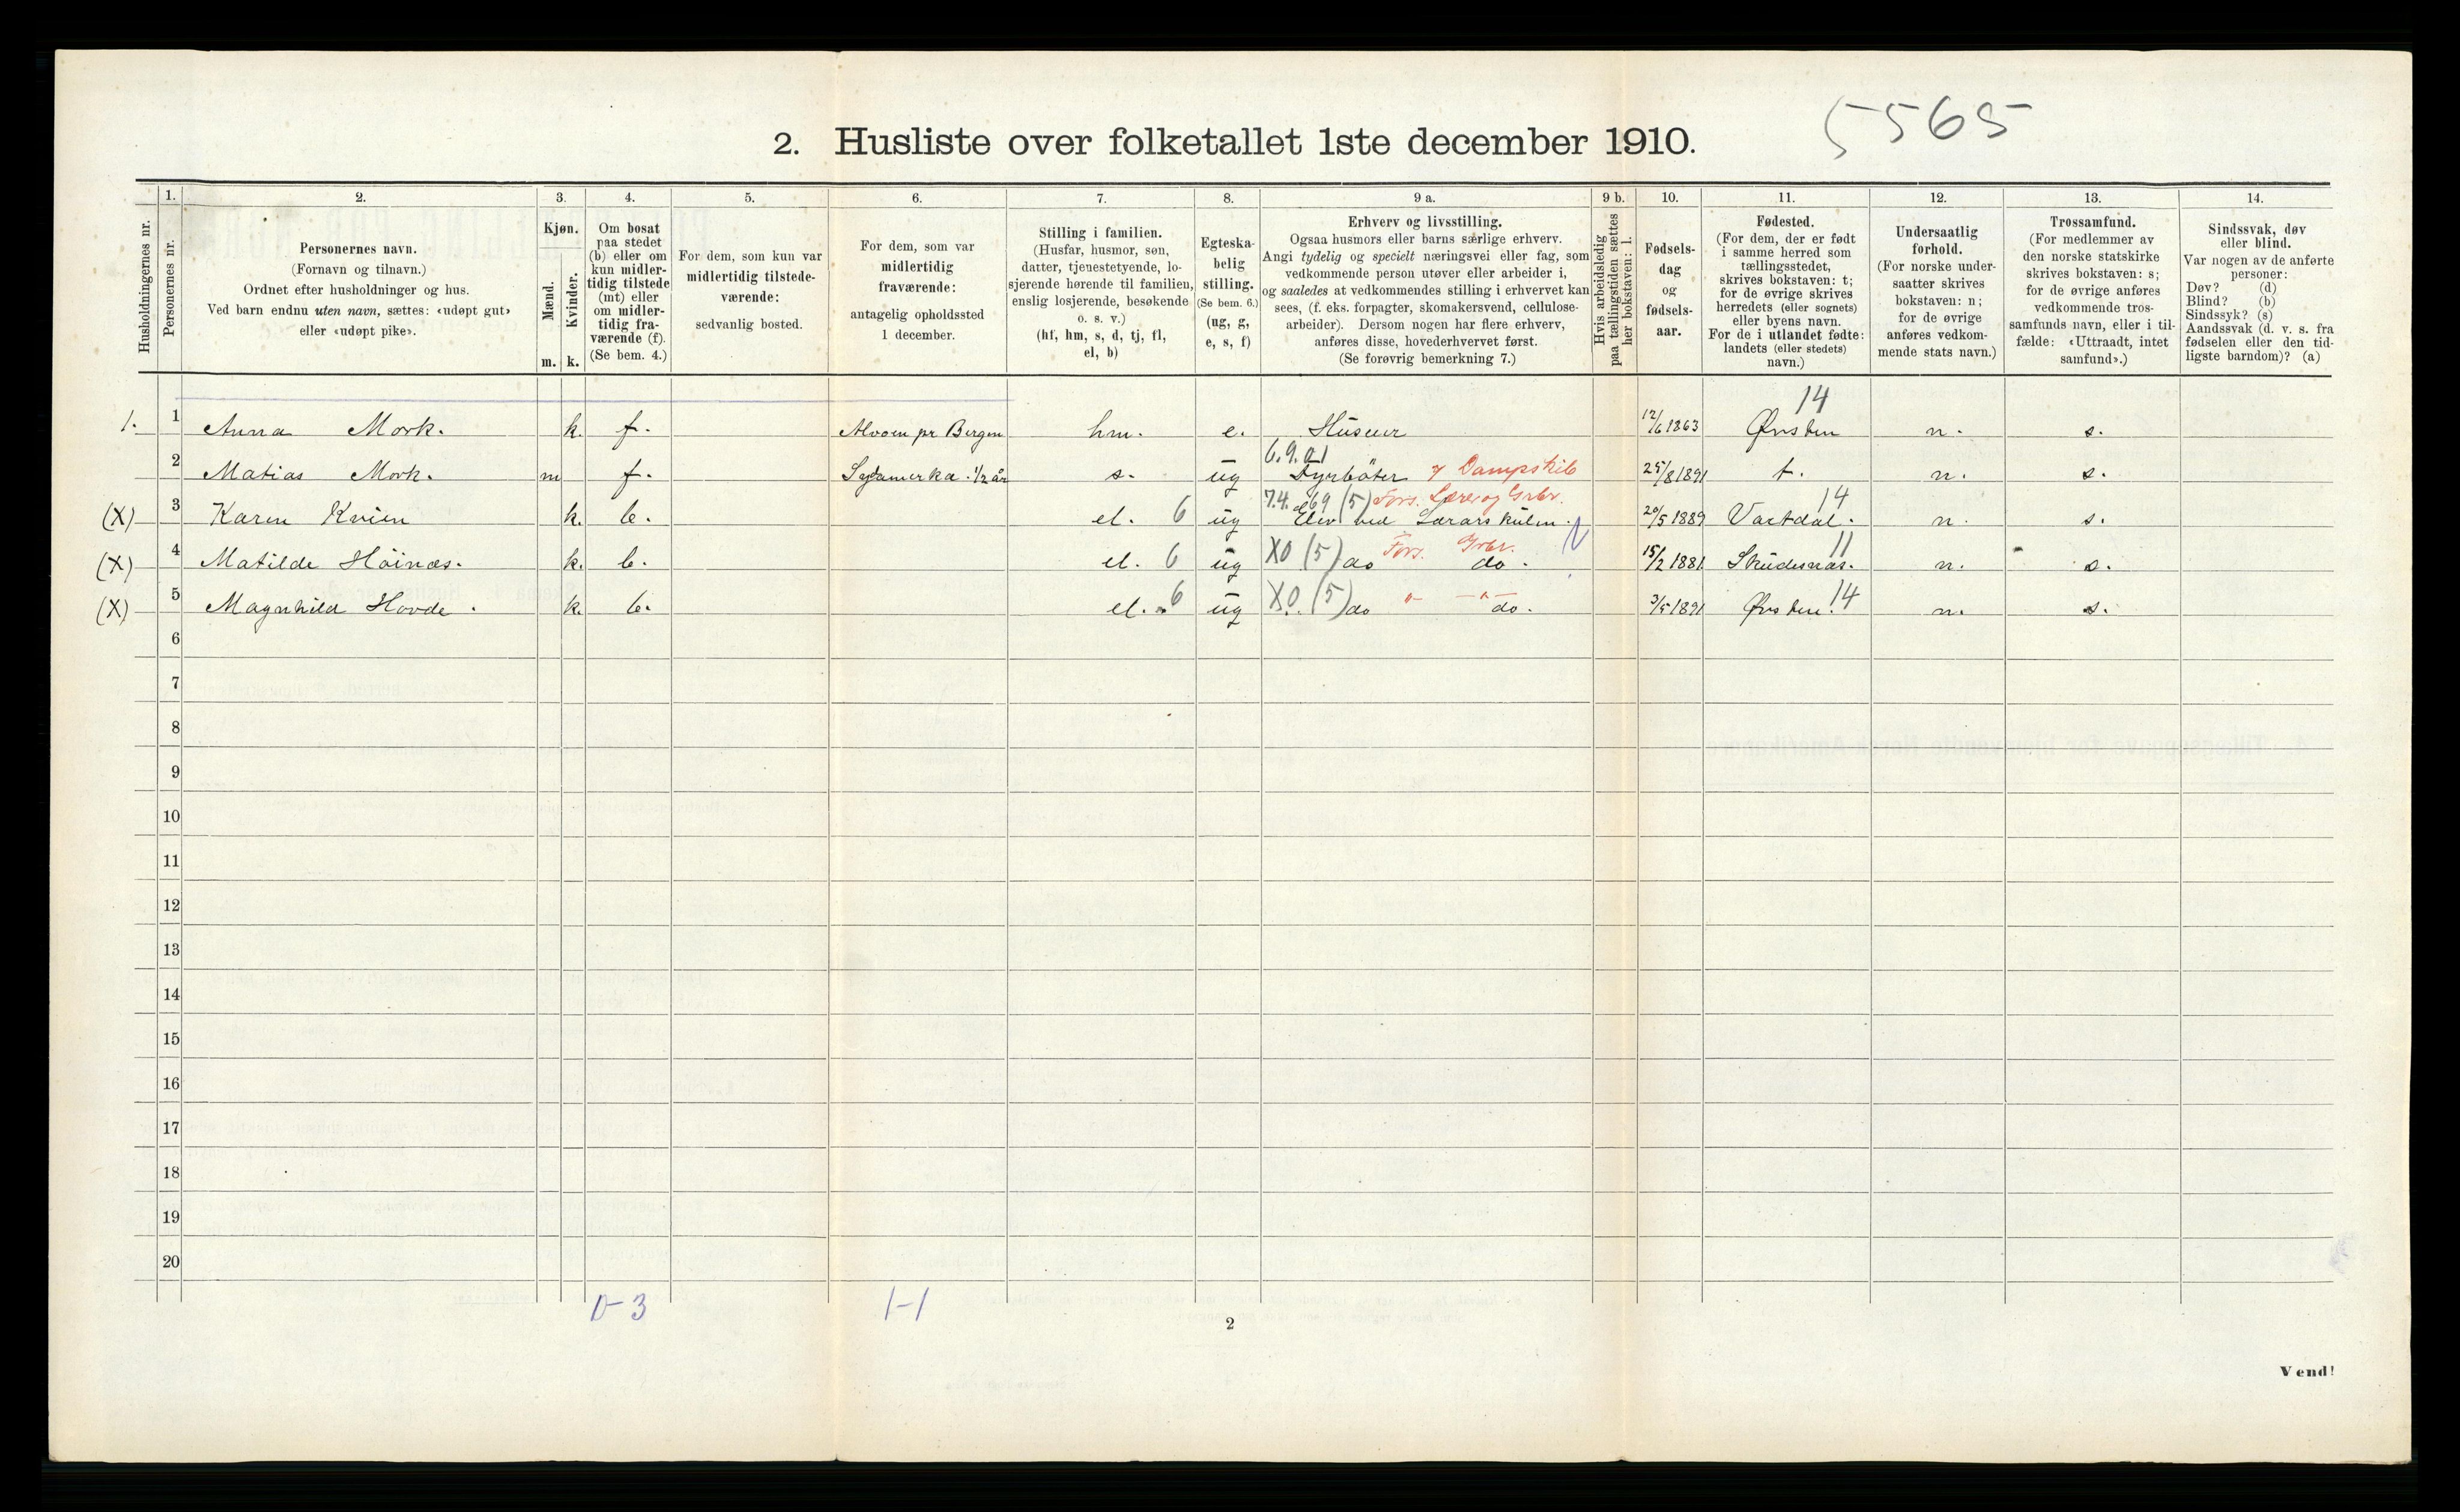 5565
2. Husliste over folketallet 1ste december 1910.
Husholdningernes nr.
1. Personernes nr.
2. Personernes navn.
(Fornavn og tilnavn.)
Ordnet efter husholdninger og hus.
Ved barn endnu uten navn, sættes: «udøpt gut»
eller «udøpt pike».
3. Kjøn.
Mænd. m.
Kvinder. k.
4. Om bosat
paa stedet
(b) eller om
kun midler-
tidig tilstede
(mt) eller
om midler-
tidig fra-
værende (f).
(Se bem. 4.)
5. For dem, som kun var
midlertidig tilstede-
værende:
sedvanlig bosted.
6. For dem, som var
midlertidig
fraværende:
antagelig opholdssted
1 december.
7. Stilling i familien.
(Husfar, husmor, søn,
datter, tjenestetyende, lo-
sjerende hørende til familien,
enslig losjerende, besøkende
o. s. v.)
(hf, hm, s, d, tj, fl,
el, b)
8. Egteska-
belig
stilling.
(Se bem. 6.)
(ug, g,
e, s, f)
9 a. Erhverv og livsstilling.
Ogsaa husmors eller barns særlige erhverv.
Angi tydelig og specielt næringsvei eller fag, som
vedkommende person utøver eller arbeider i,
og saaledes at vedkommendes stilling i erhvervet kan
sees, (f. eks. forpagter, skomakersvend, cellulose-
arbeider). Dersom nogen har flere erhverv,
anføres disse, hovederhvervet først.
(Se forøvrig bemerkning 7.)
9 b. Hvis arbeidsledig
paa tællingstiden sættes
her bokstaven: l.
10. Fødsels-
dag
og
fødsels-
aar.
11. Fødested.
(For dem, der er født
i samme herred som
tællingsstedet,
skrives bokstaven: t;
for de øvrige skrives
herredets (eller sognets)
eller byens navn.
For de i utlandet fødte:
landets (eller stedets)
navn.)
12. Undersaatlig
forhold.
(For norske under-
saatter skrives
bokstaven: n;
for de øvrige
anføres vedkom-
mende stats navn.)
13. Trossamfund.
(For medlemmer av
den norske statskirke
skrives bokstaven: s;
for de øvrige anføres
vedkommende tros-
samfunds navn, eller i til-
fælde: «Uttraadt, intet
samfund».)
14. Sindssvak, døv
eller blind.
Var nogen av de anførte
personer:
Døv? (d)
Blind? (b)
Sindssyk? (s)
Aandssvak (d. v. s. fra
fødselen eller den tid-
ligste barndom)? (a)
14
1. 1 Anna Mork. k. f. Alvoen pr Bergen hm. e. Huseier 12/6 1863 Ørsten n. s.
6.9.01
2 Matias Mork. m f. Sydamerka 1/2 år s. ug Fyrbøter / Dampskib 25/8 1891 t. n. s.
7.4.69 (5) Fors. Lærer og Grbr. 14
(X) 3 Karen Kvien k. b. el. 6 ug Elev ved Lararskulen. 20/5 1889 Vartdal. n. s.
(X) 4 Matilde Höinæs. k. b. el. 6 ug X0 (5) do Fors. Grbr. do. 15/2 1881 Skudesnæs. 11 n. s.
(X) 5 Magnhild Hovde. k. b. el. 6 ug X0. (5) do " —"— do. 3/5 1891 Ørsten. 14 n. s.
6
7
8
9
10
11
12
13
14
15
16
17
18
19
20
0-3 1-1
2
Vend!